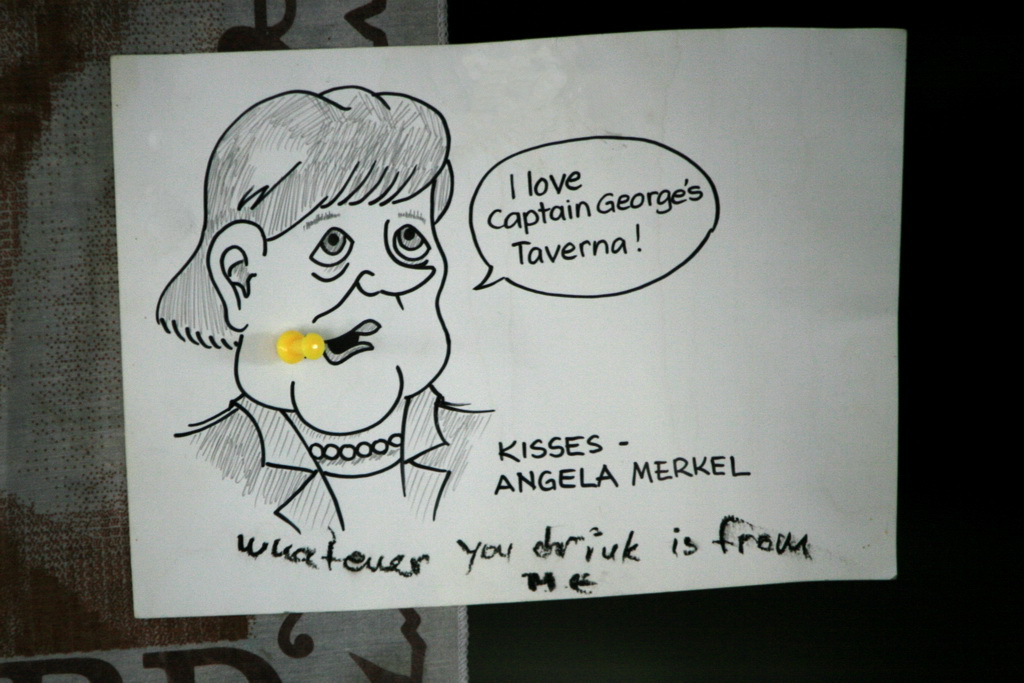 I love
Captain George's
Taverna!
KISSES -
ANGELA MERKEL
whatever you drink is from
ME